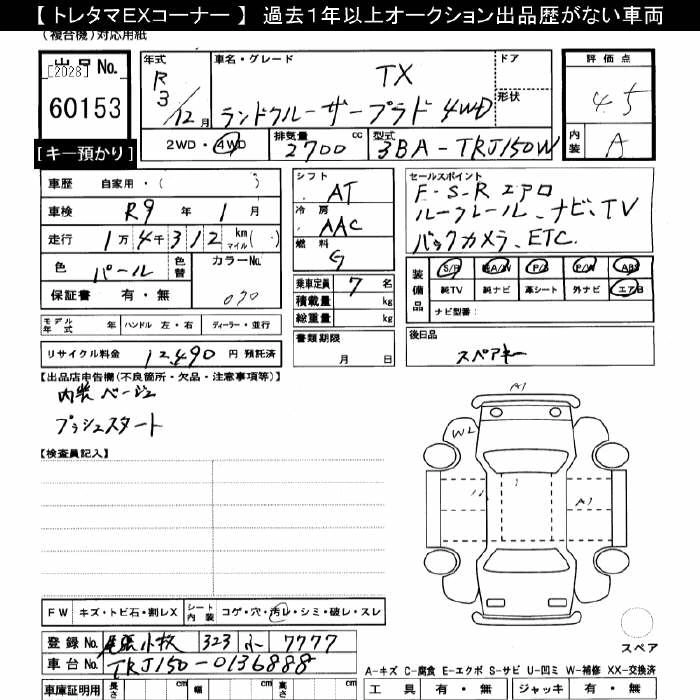 【 トレタマEXコーナー 】 過去1年以上オークション出品歴がない車両
(複合機)対応用紙
出品No.
[2028]
60153
[キー預かり]
年式
R3/12月
車名・グレード
TX
ランドクルーザープラド 4WD
ドア
形状
評価点
4.5
内装
A
2WD・4WD
排気量
2700 cc
型式
3BA-TRJ150W
車歴 自家用・( )
車検 R9 年 1 月
走行 1万4千312 km マイル( )
色 パール 色替 カラーNo. 070
保証書 有・無
シフト AT
冷房 AAC
燃料 G
乗車定員 7 名
積載量 kg
総重量 kg
書類期限
月 日
セールスポイント
F-S-R エアロ
ルーフレール、ナビ、TV
バックカメラ、ETC.
装備品 S/R 純A/W P/S P/W ABS
純TV 純ナビ 革シート 外ナビ エアB
ナビ型番:
モデル年式 年 ハンドル 左・右 ディーラー・並行
リサイクル料金 12,490 円 預託済
後日品
スペアキー
【出品店申告欄(不良箇所・欠品・注意事項等)】
内装ベージュ
プッシュスタート
【検査員記入】
A1
W2
A1
FW キズ・トビ石・割レX シート内装 コゲ・穴・汚レ・シミ・破レ・スレ
登録No. 尾張小牧 323 ふ 7777
車台No. TRJ150-0136888
スペア
A-キズ C-腐食 E-エクボ S-サビ U-凹ミ W-補修 XX-交換済
車庫証明用 長さ cm 幅 cm 高さ cm
工具 有・無 ジャッキ 有・無